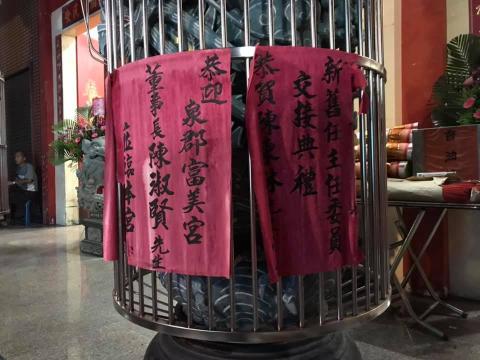 新舊任主任委員
交接典禮
恭賀陳東林
恭迎
泉郡富美宮
董事長陳淑賢先生
蒞臨本宮